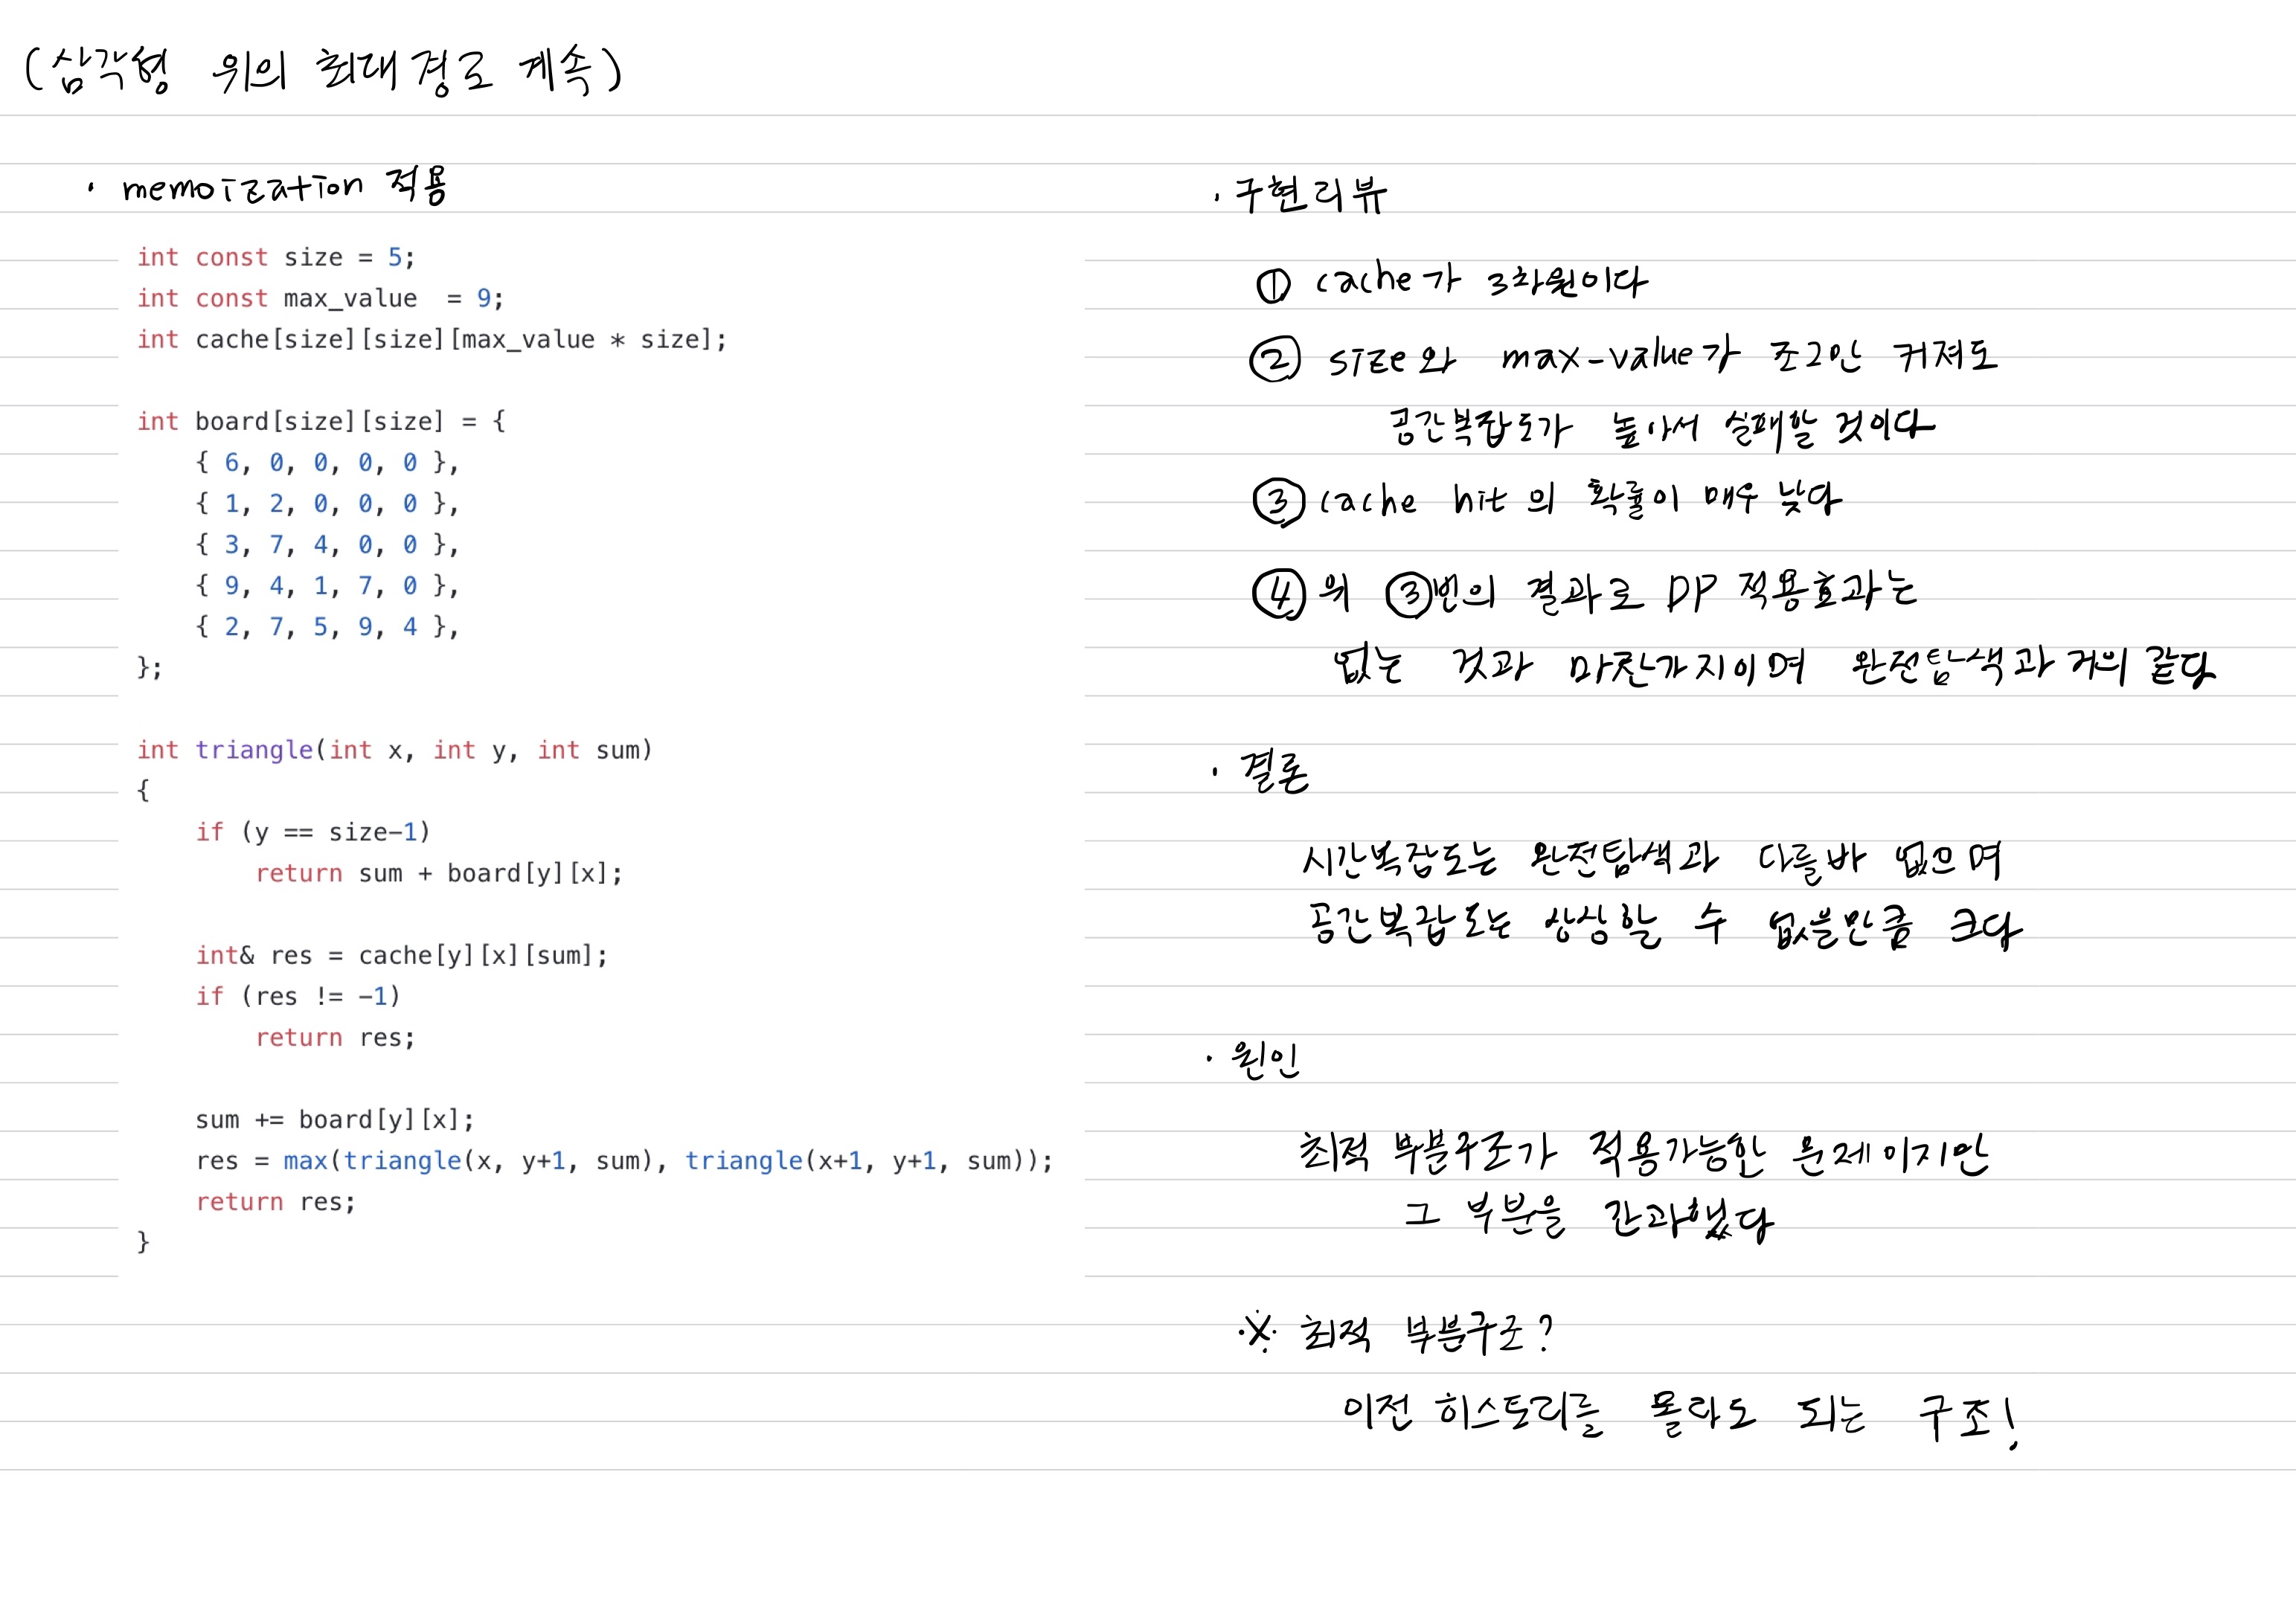 (삼각형 위의 최대경로 계속)
· memoization 적용
int const size = 5;
int const max_value  = 9;
int cache[size][size][max_value * size];
int board[size][size] = {
    { 6, 0, 0, 0, 0 },
    { 1, 2, 0, 0, 0 },
    { 3, 7, 4, 0, 0 },
    { 9, 4, 1, 7, 0 },
    { 2, 7, 5, 9, 4 },
};
int triangle(int x, int y, int sum)
{
    if (y == size-1)
        return sum + board[y][x];
    int& res = cache[y][x][sum];
    if (res != -1)
        return res;
    sum += board[y][x];
    res = max(triangle(x, y+1, sum), triangle(x+1, y+1, sum));
    return res;
}
· 구현리뷰
① cache가 3차원이다
② size와 max-value가 조그만 커져도
공간복잡도가 높아서 실패할 것이다
③ cache hit의 확률이 매우 낮다
④ 위 ③번의 결과로 DP 적용효과는
없는 것과 마찬가지이며 완전탐색과 거의 같다
· 결론
시간복잡도는 완전탐색과 다를바 없으며
공간복잡도는 상상할 수 없을만큼 크다
· 원인
최적 부분구조가 적용가능한 문제이지만
그 부분을 간과했다
※ 최적 부분구조?
이전 히스토리를 몰라도 되는 구조!